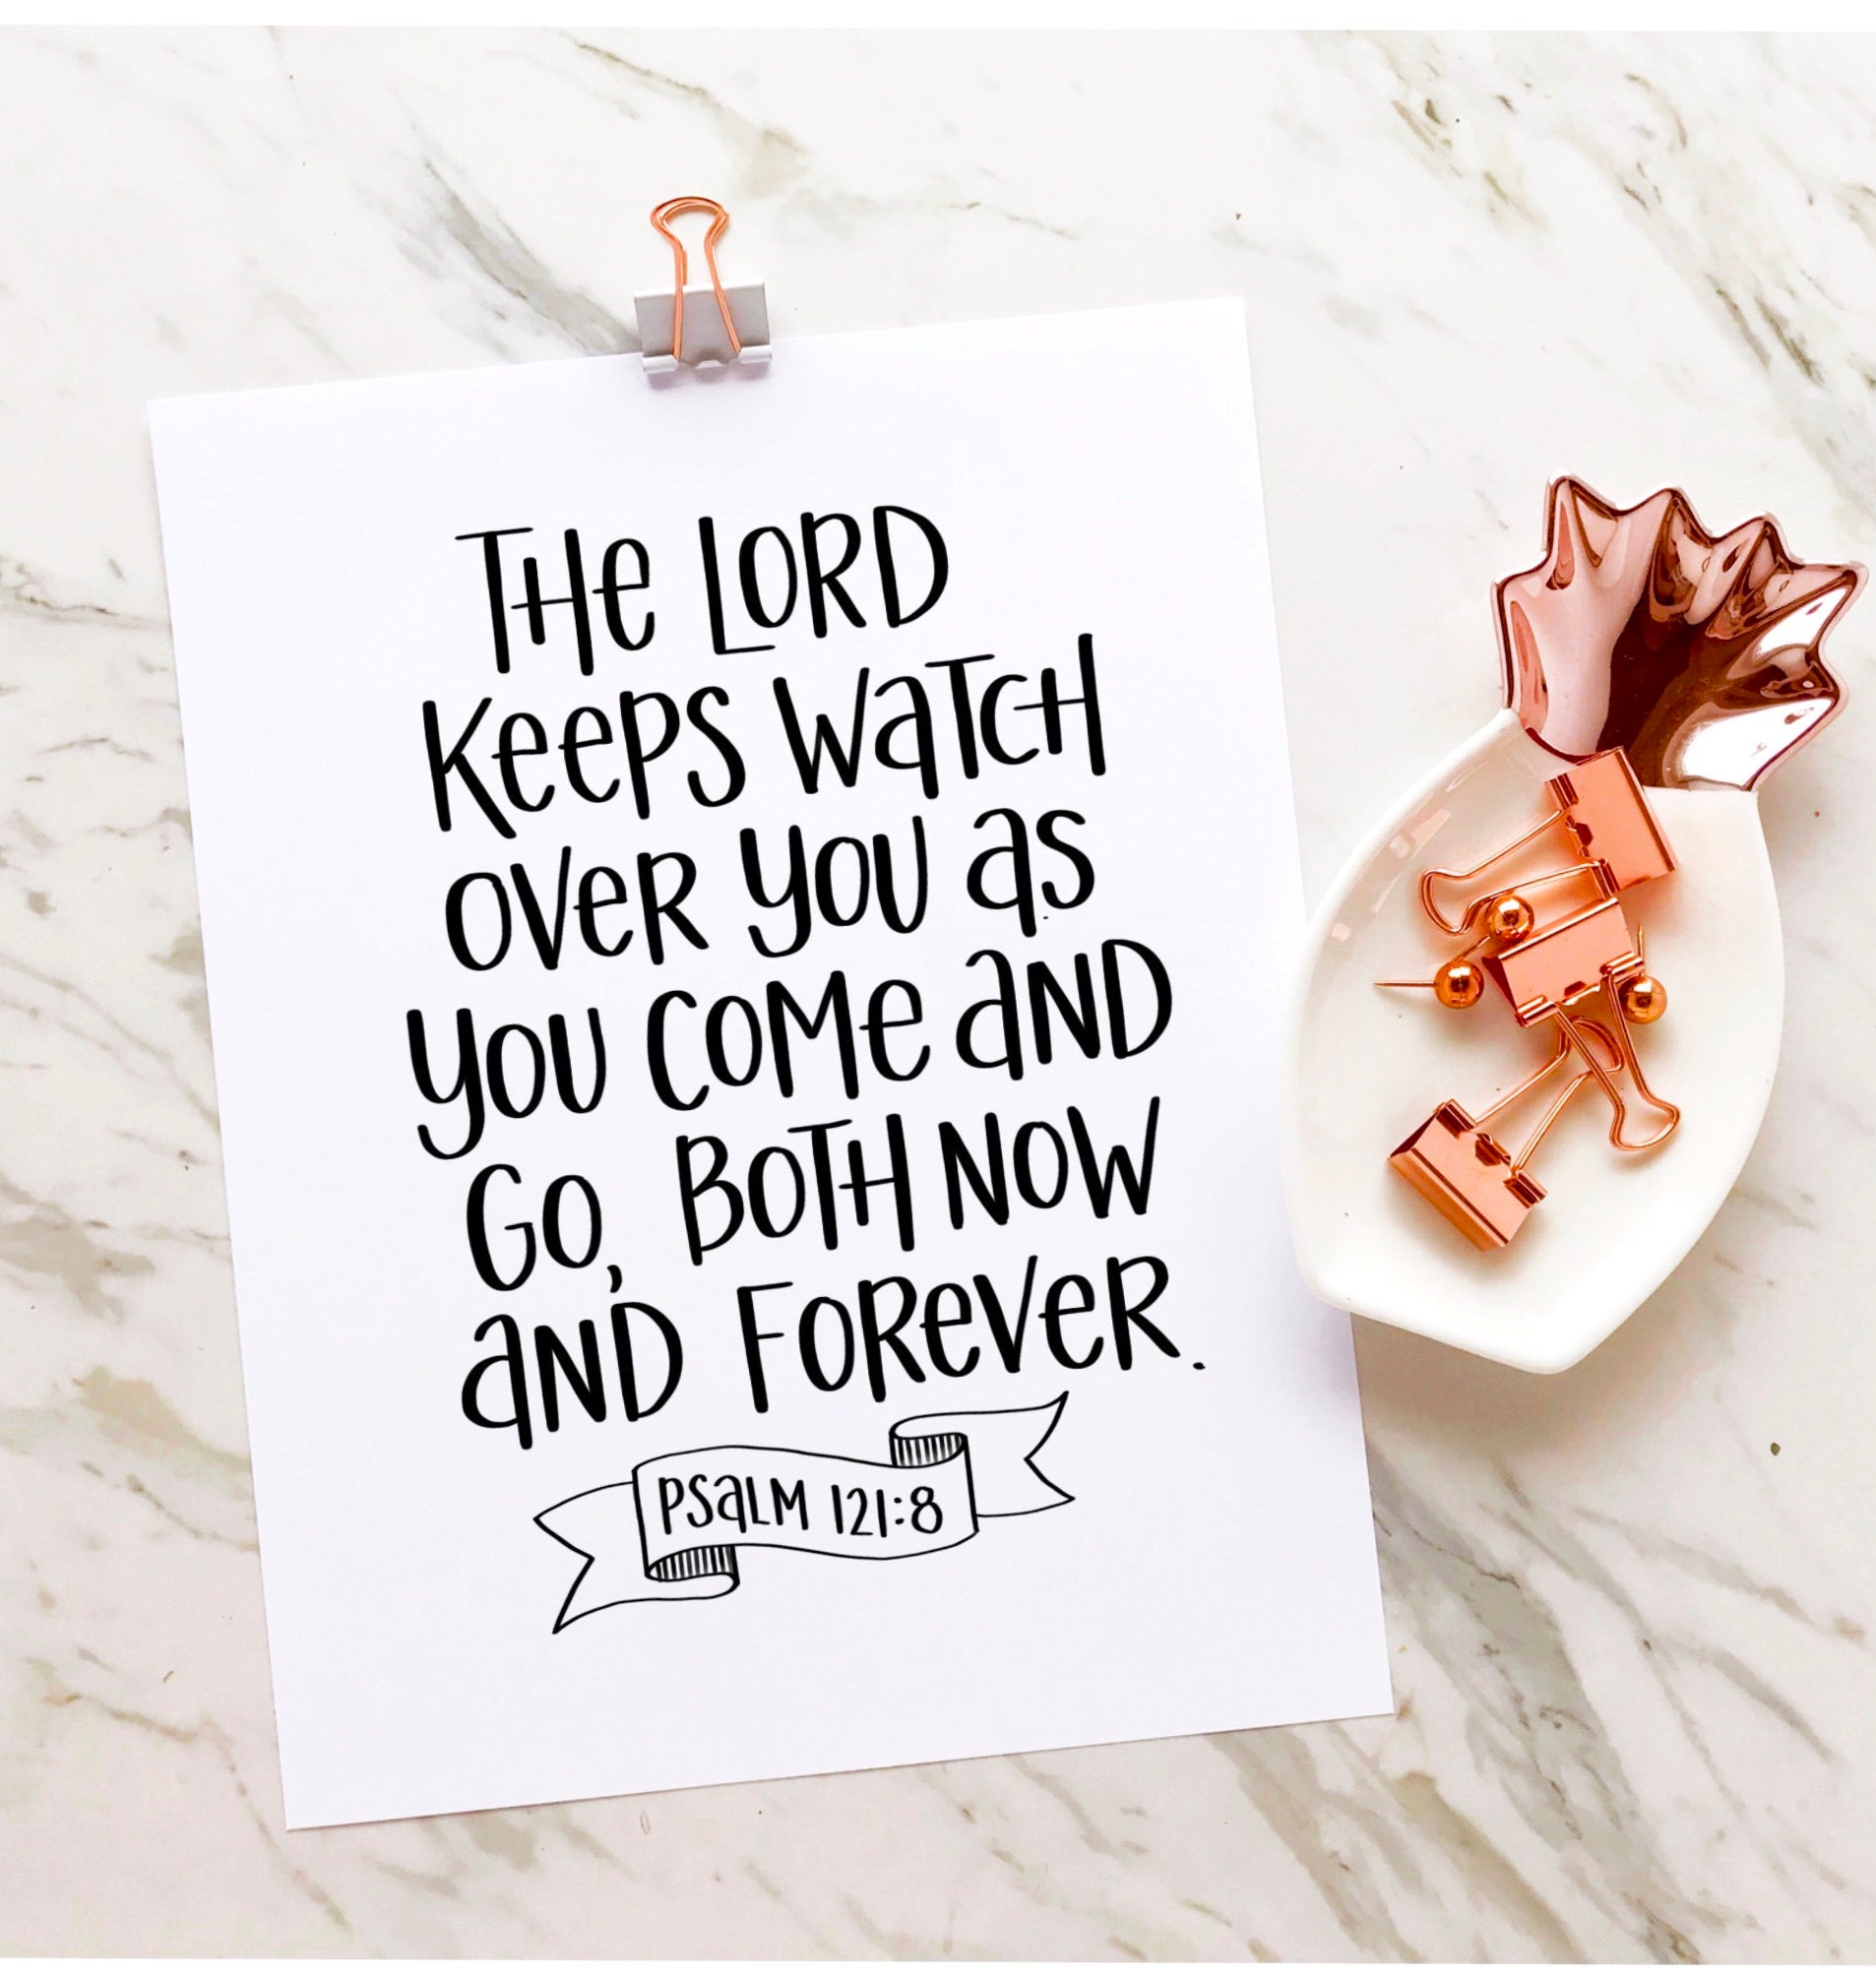 THe LORD
KeePS WaTCH
OVeR YOU aS
YOU COMe aND
GO, BOTH NOW
aND FOReVeR.
PSaLM 121:8